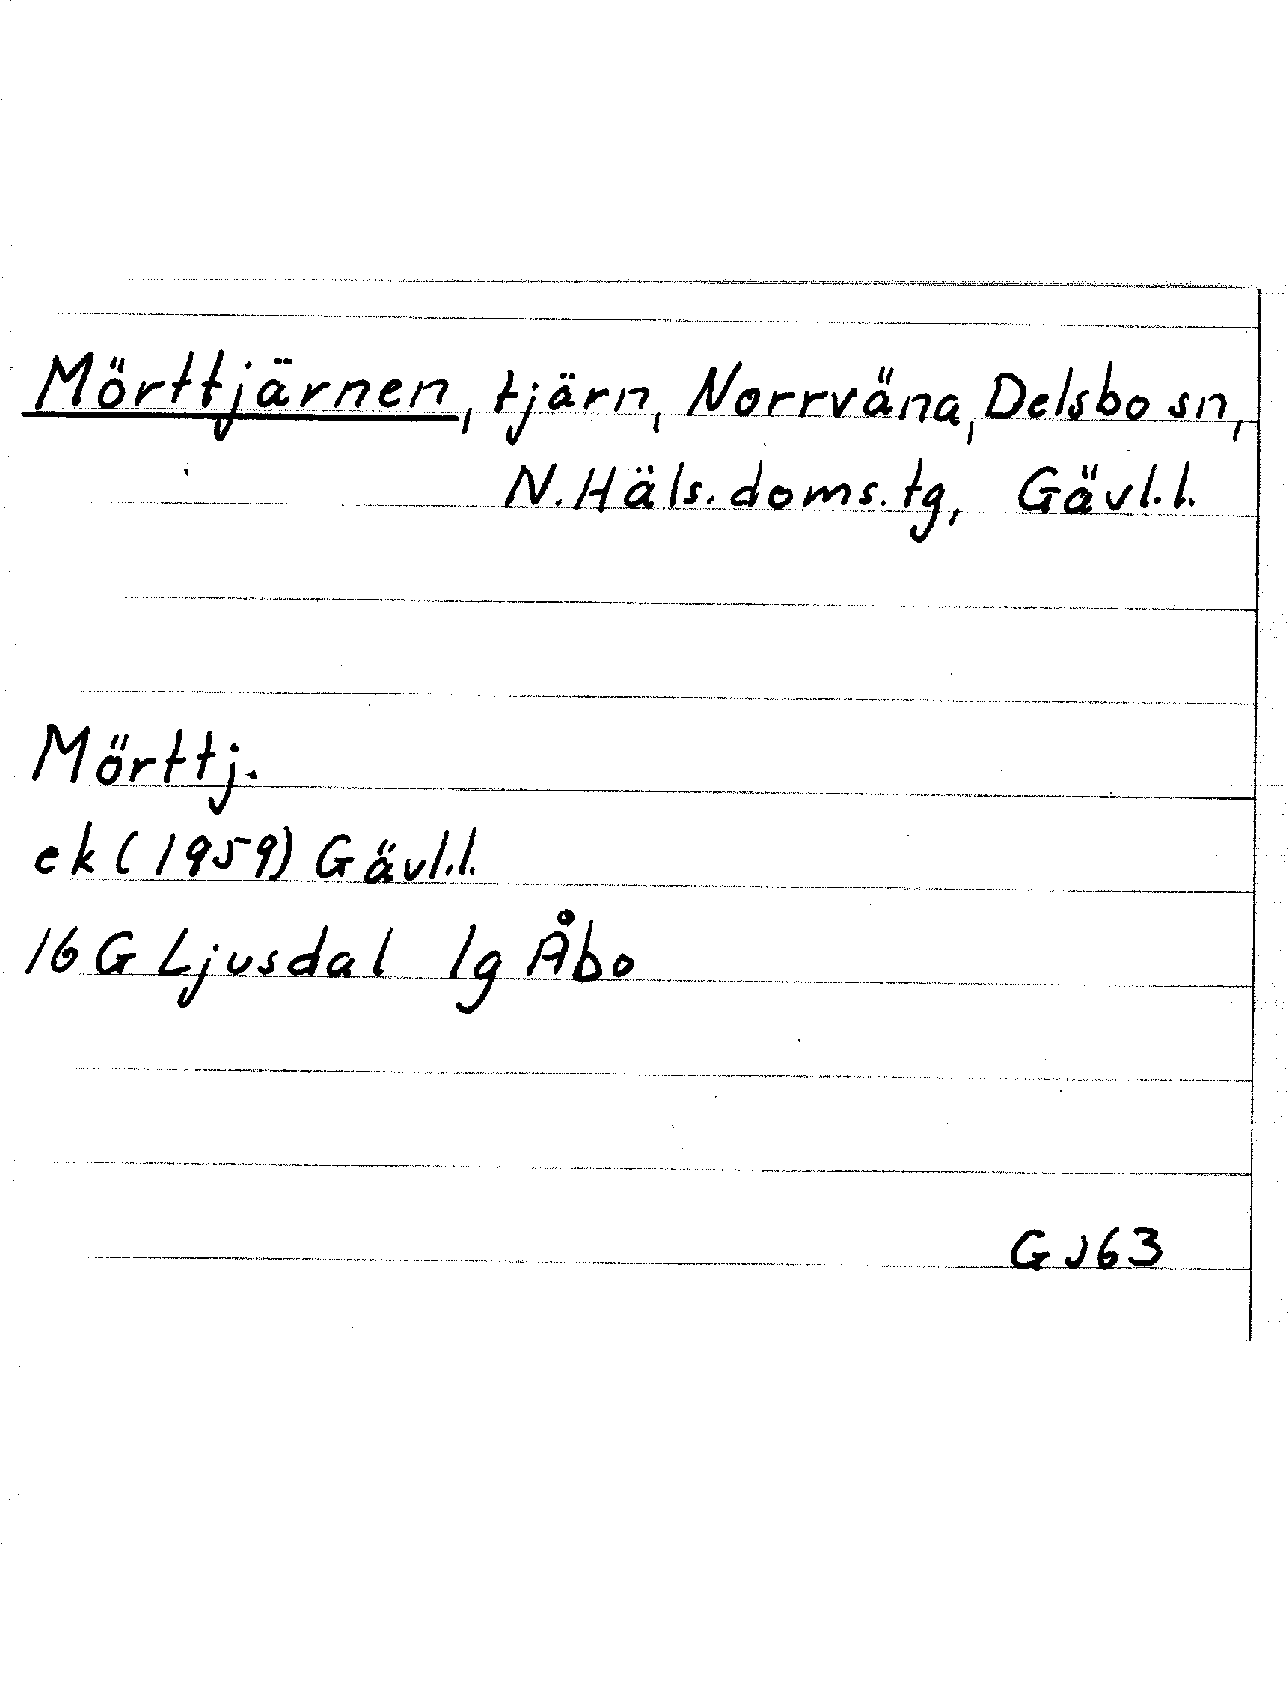 Mörttjärnen, tjärn, Norrväna, Delsbo sn,
N. Häls. doms. tg, Gävl. l.
Mörttj.
ek (1959) Gävl. l.
16 G Ljusdal 1g Åbo
GJ63